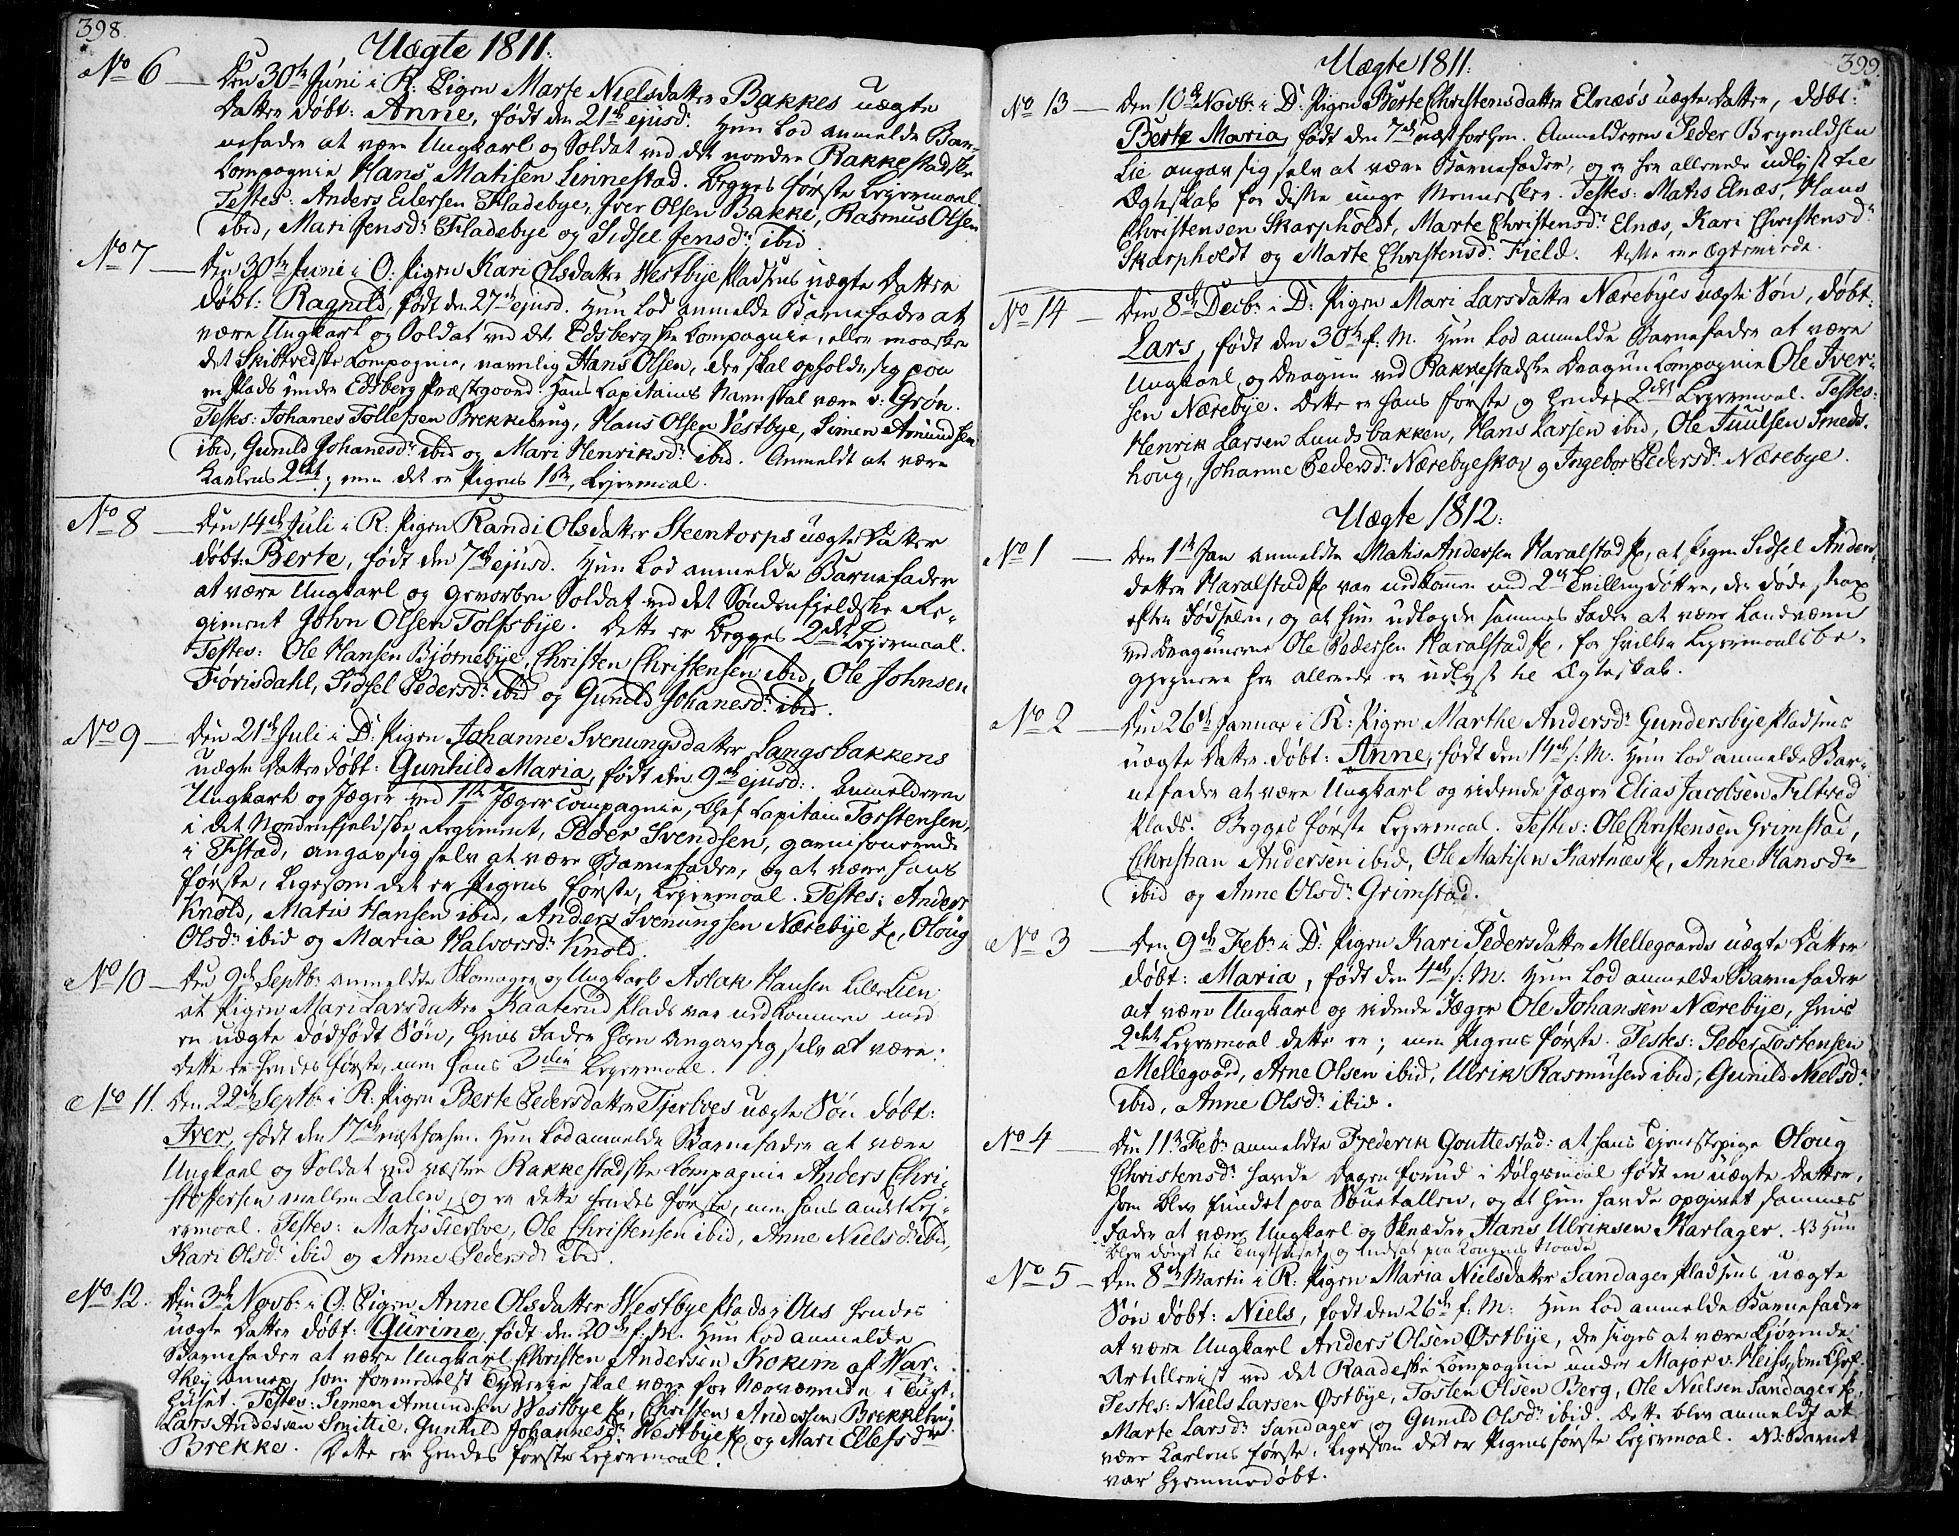 398.
Uægte 1811.
No 6 Den 30te Juni i R: Pigen Marte Nielsdatter Bakkes uægte
Datter døbt: Anne, født den 21de ejusd. Hun lod anmelde Bar-
nefader at være Ungkarl og Soldat ved det nordre Rakkestadske
Compagnie Hans Matisen Linnestad. Begges første Lejermaal.
Testes: Anders Eilersen Fladebye, Iver Olsen Bakke, Rasmus Olsen
ibid, Mari Jensdr Fladebye og Sidsel Jensdr ibid.
No 7 Den 30te Juni i O: Pigen Kari Olsdatter Westbyepladsens uægte Datter
døbt: Ragnild, født den 27de ejusd. Hun lod anmelde Barnefader at
være Ungkarl og Soldat ved det Edsbergske Compagnie, eller maaskee
det Skibtvedske Compagnie, navnlig Hans Olsen, der skal opholde sig paa
en Plads under Edsberg Præstegaard. Hans Capitains Navn skal være v: Grøn.
Testes: Johanes Tollefsen Brekkebrug, Hans Olsen Vestbye, Simen Amundsen
ibid, Gunild Johanesdr ibid og Mari Henriksdr ibid. Anmeldt at være
Karlens 2det; men det er Pigens 1ste Lejermaal.
No 8 Den 14de Juli i R: Pigen Randi Olsdatter Steentorps uægte Datter
døbt: Berte, født den 7de ejusd. Hun lod anmelde Barnefader
at være Ungkarl og gevorben Soldat ved det Søndenfjeldske Re-
giment John Olsen Tolfsbye. Dette er begges 2det Lejermaal.
Testes: Ole Hansen Bjørnebye, Christen Christensen ibid, Ole Johnsen
Førisdahl, Sidsel Pedersdr ibid og Gunild Johanesdr ibid.
No 9 Den 21de Juli i D: Pigen Johanne Svenungsdatter Langsbakkens
uægte Datter døbt: Gunhild Maria, født den 9de ejusd:. Anmelderen
Ungkarl og Jæger ved 1ste Jægercompagnie, Chef Capitain Torstensen,
i det Nordenfjeldske Regiment, Peder Svendsen, garnisonerende
i Fstad, angav sig selv at være Barnefader, og at være hans
første, ligesom det er Pigens første, Lejermaal. Testes: Anders
Knold, Matis Hansen ibid, Anders Svenungsen Nærebye pl, Oloug
Olsdr ibid og Maria Halvorsdr Knold.
No 10 Den 9de Septbr anmeldte Skomager og Ungkarl Aslak Hansen Lille Lien
at Pigen Mari Larsdatter Raaterud Plads var nedkommen med
en uægte dødfødt Søn, hvis Fader han angav sig selv at være.
Dette er hendes første, men hans 3die Lejermaal.
No 11. Den 22de Septbr i R: Pigen Berte Pedersdatter Tjerboes uægte Søn døbt:
Iver, født den 17de næstforhen. Hun lod anmelde Barnefader at være
Ungkarl og Soldat ved vestre Rakkestadske Compagnie Anders Chri-
stoffersen mellem Dalen, og er dette hendes første, men hans andet Lej-
ermaal. Testes: Matis Tierbve, Ole Christensen ibid, Anne Nielsdr ibid,
Kari Olsdr ibid og Anne Pedersdr ibid.
No 12. Den 3de Novbr i O: Pigen Anne Olsdatter Westbye Plads Ous hendes
uægte Datter døbt: Gurine, født den 20de f. M. Hun lod anmelde
Barnefader at være Ungkarl Christen Andersen Kokim af War-
thejannex, som formedelst Tyverie skal være for Nærværende i Tugt-
huset. Testes: Simen Amundsen Westbye pl, Christen Andersen Brekkebrug,
Lars Andersen Smittie, Gunhild Johannesdr Westbye pl og Mari Ellefsdr
Brekke. Dette er hendes første Lejermaal.
399.
Uægte 1811.
No 13 Den 10de Novbr i D: Pigen Berte Christensdatter Elnæs's uægte Datter, døbt:
Berte Maria, født den 7de næstforhen. Anmelderen Peder Brynildsen
Lie angav sig selv at være Barnefader, og er her allerede udlyst til
Ægteskab for disse unge Mennesker. Testes: Matis Elnæs, Hans
Christensen Skarpholdt, Marte Christensdr Elnæs, Kari Christensdr
Skarpholdt og Marte Christensdr Field. Disse ere Ægteviede.
No 14 Den 8de Decbr i D: Pigen Mari Larsdatter Nærebyes uægte Søn, døbt:
Lars, født den 30te f. M. Hun lod anmelde Barnefader at være
Ungkarl og Dragun ved Rakkestadske Dragun Compagnie Ole Iver-
sen Nærebye. Dette er hans første og hendes 2det Lejermaal. Testes:
Henrik Larsen Lundsbakken, Hans Larsen ibid, Ole Juulsen Smeds-
houg, Johanne Pedersdr Nærebyeskov og Ingebor Pedersdr Nærebye.
Uægte 1812.
No 1 Den 1ste Jan anmeldte Matis Andersen Haralstad pl, at Pigen Sidsel Anders-
datter Haralstad pl var nedkommen med 2de Tvillingdøttre, der døde strax
efter Fødselen, og at hun udlagde sammes Fader at være Landværn
ved Dragunerne Ole Pedersen Haralstad pl, for hvilke Lejermaalsbe-
gjengere her allerede er udlyst til Ægteskab.
No 2 Den 26de Januar i R: Pigen Marthe Andersdr Gundersbyepladsens
uægte Datter døbt: Anne, født den 14de s. M. Hun lod anmelde Bar-
nefader at være Ungkarl og ridende Jæger Elias Jacobsen Filtved
Plads. Begges første Lejermaal. Testes: Ole Christensen Grimstad,
Christian Andersen ibid, Ole Matisen Kartnæs pl, Anne Hansdr
ibid og Anne Olsdr Grimstad.
No 3 Den 9de Febr i D: Pigen Kari Pedersdatter Mellegaards uægte Datter
døbt: Maria, født den 4de s. M. Hun lod anmelde Barnefader
at være Ungkarl og ridende Jæger Ole Johansen Nærebye, hvis
2det Lejermaal dette er; men Pigens første. Testes: Peder Tostensen
Mellegaard, Arne Olsen ibid, Ulrik Rasmusen ibid, Gunild Nielsdr
ibid, Anne Olsdr ibid.
No 4 Den 11te Febr anmeldte Frederik Gouttestad: at hans Tjenestepige Oloug
Christensdr havde Dagen forud i Dølgsmaal født en uægte Datter,
som blev fundet paa Souestallen, og at hun havde opgivet sammes
Fader at være Ungkarl og Skræder Hans Ulriksen Karlager. NB Hun
blev dømt til Tugthuset og Indsat paa Kongens Naade
No 5 Den 8de Martii i R: Pigen Maria Nielsdatter Sandagerpladsens uægte
Søn døbt: Niels, født den 26de f. M. Hun lod anmelde Barnefader
at være Ungkarl Anders Olsen Østbye, der siges at være kjørende
Artillerist ved det Raadeske Compagnie under Major v. Heiss, som Chef.
Testes: Niels Larsen Østbye, Tosten Olsen Berg, Ole Nielsen Sandager pl,
Marte Larsdr Sandager og Gunild Olsdr ibid. Dette blev anmeldt at
være Karlens første, ligesom det er Pigens første Lejermaal. NB: Barnet
var hjemmedøbt.